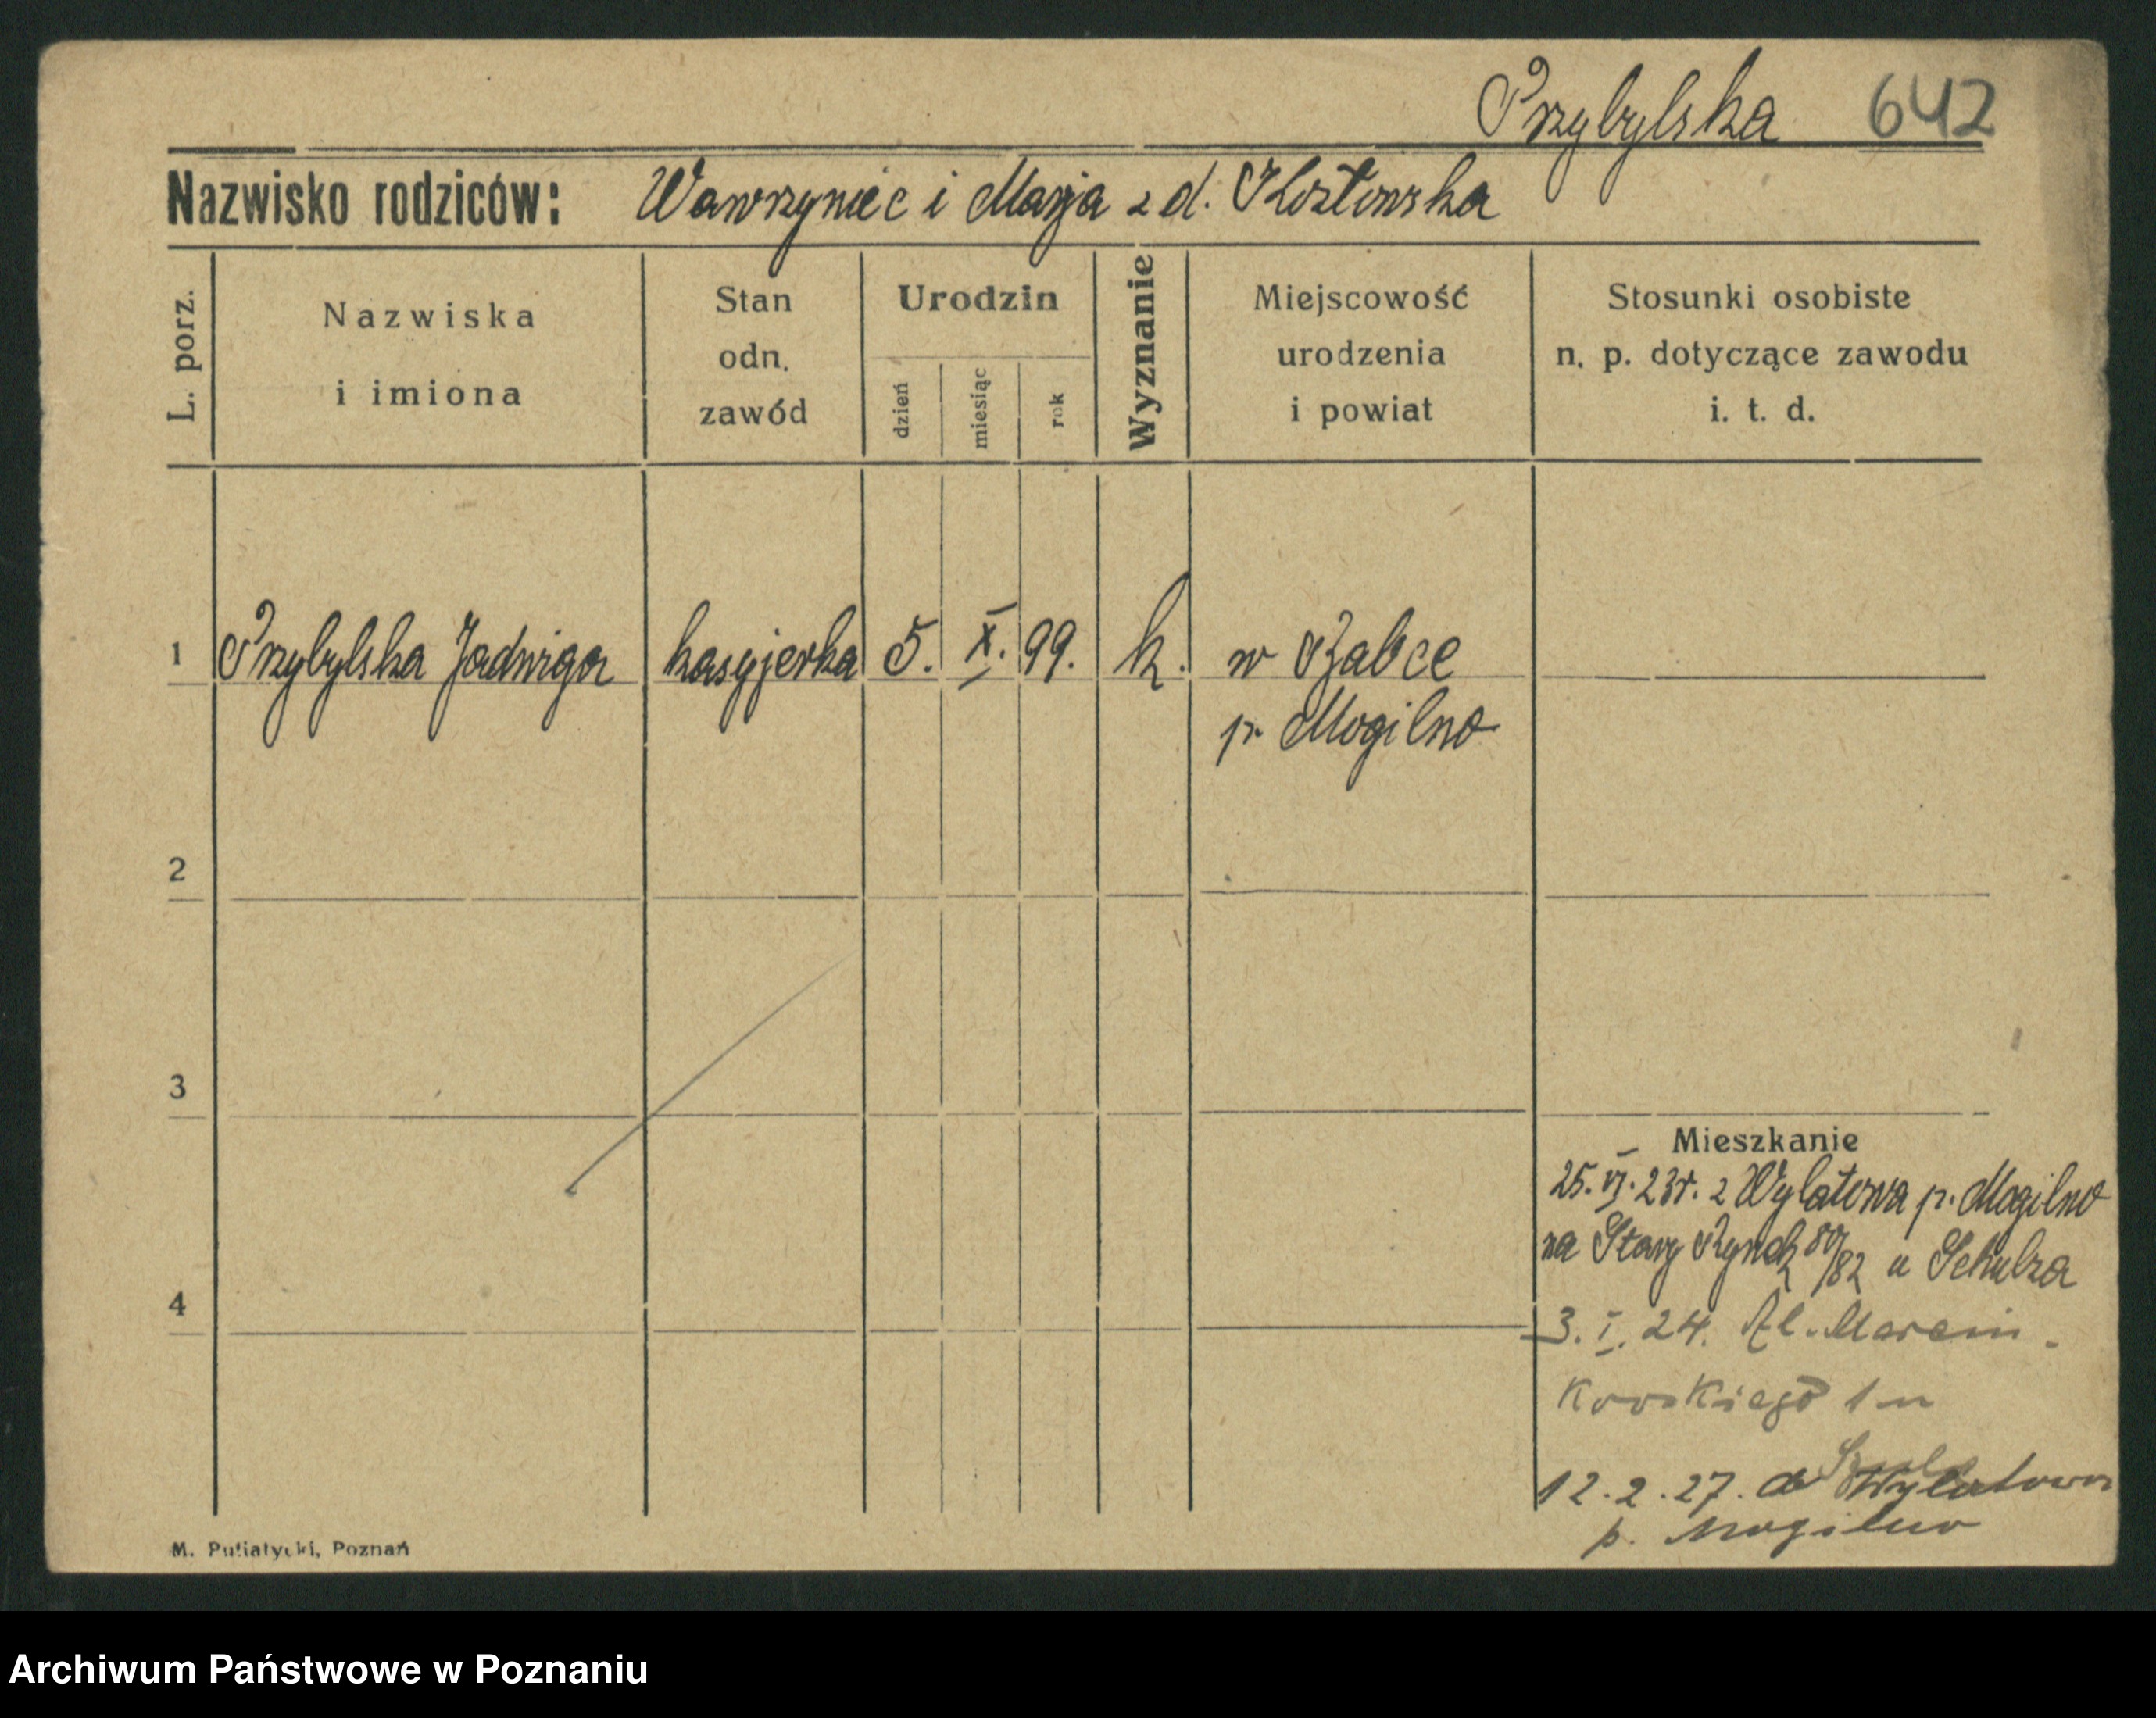 Przybylska 642
Nazwisko rodziców: Wawrzyniec i Marja z d. Kozłowska
L. porz.
Nazwiska
i imiona
Stan
odn.
zawód
Urodzin
dzień
miesiąc
rok
Wyznanie
Miejscowość
urodzenia
i powiat
Stosunki osobiste
n. p. dotyczące zawodu
i. t. d.
1 Przybylska Jadwiga kasyjerka 5. X. 99. k. w
p. Mogilno
2
3
4
Mieszkanie
25.VI.23r. z Wylatowa p. Mogilno
na Stary Rynek 80/82 u Schulza
3. I. 24. Al. Marcin-
kowskiego 1
12.2.27. do Wylatowa
p. Mogilno
M. Putiatycki, Poznań
Archiwum Państwowe w Poznaniu